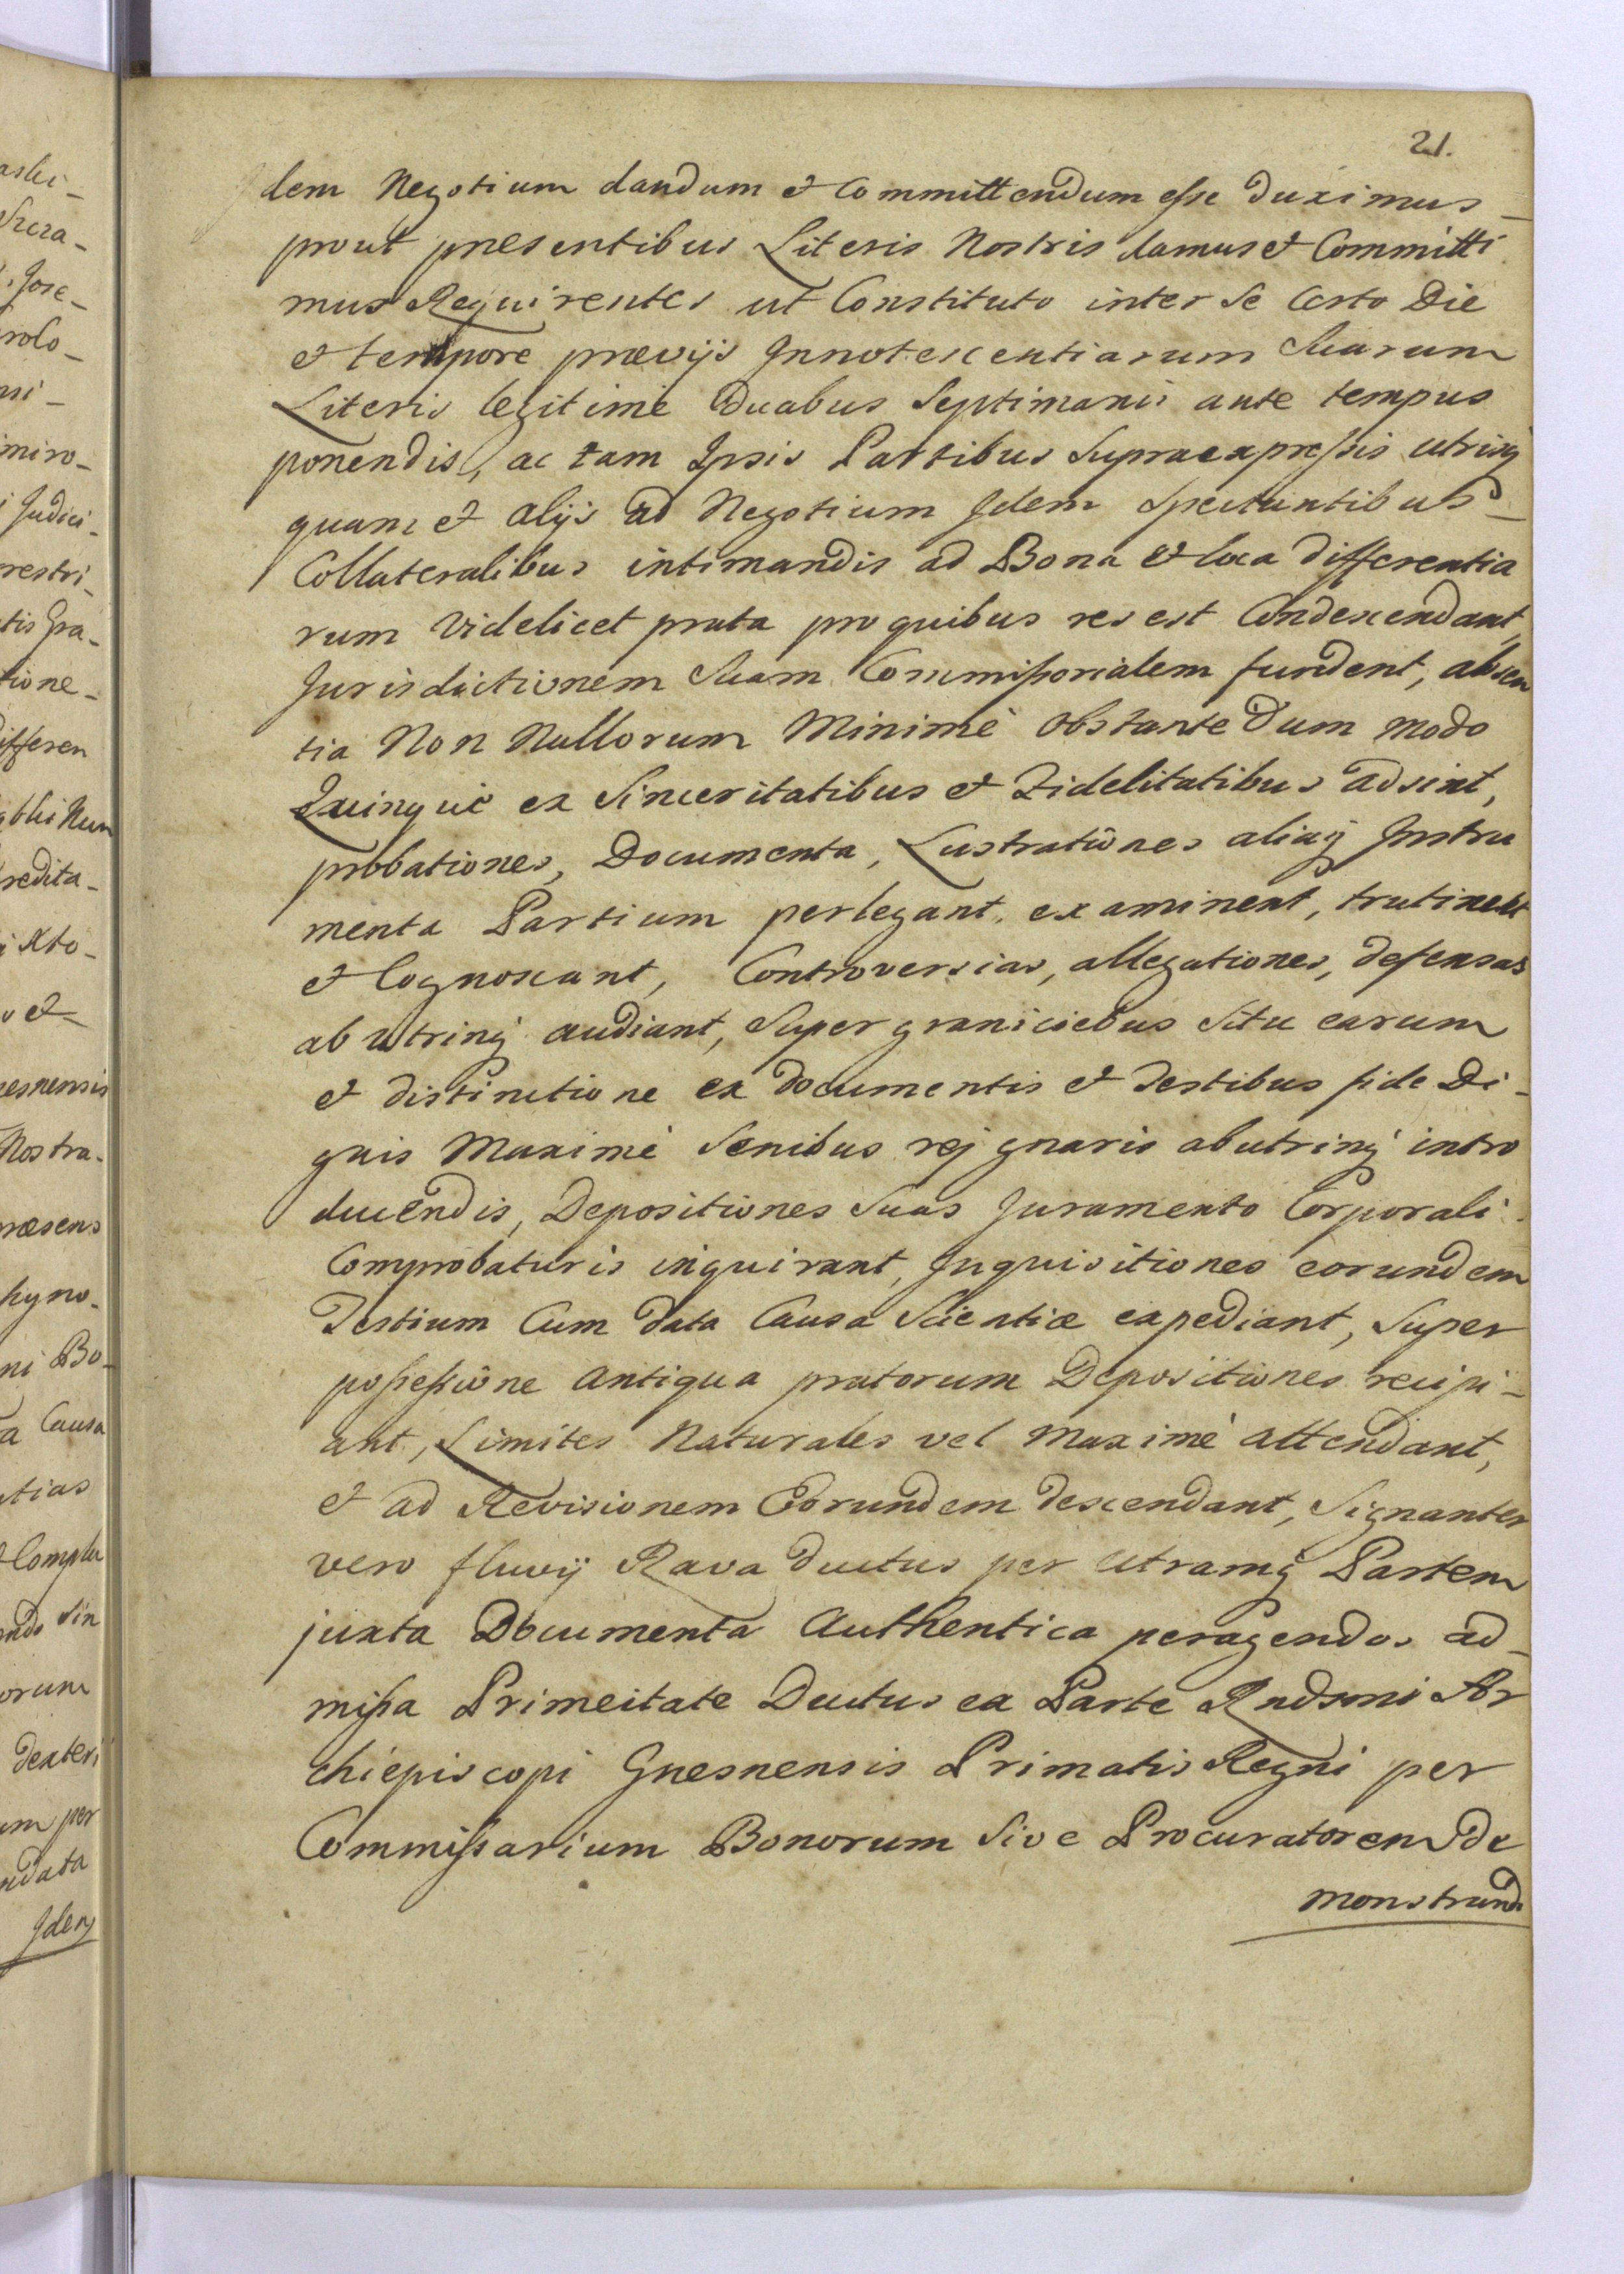 21.
dem Negotium dandum et Committendum esse duximus_
prout presentibus Literis Nostris damus et Committi
mus Requirentes ut Constituto inter se Certo Die
et tempore prævijs Innotescentiarum Suarum
Literis legitimè duabus Septimanis ante tempus
ponendis, ac tam Ipsis Partibus Supraexpressis utrisq
quam et alijs ad Negotium Idem Spectantibus_
Collateralibus intimandis ad Bona et loca differentia
rum Videlicet prata pro quibus res est Condescendant,
Jurisdictionem Suam Commissorialem fundent, absen
tia Non Nullorum Minimè Obstante Dum modo
Quinque ex Sinceritatibus et Fidelitatibus adsint,
probationes, Documenta, Lustrationes aliaq Instru
menta Partium perlegant, examinent, trutinent
et Cognoscant, Controversias, allegationes, defensas
ab utrinq audiant, Super graniciebus Situ earum
et distinctione ex documentis et Testibus fide Di_
gnis Maximè Senibus rej gnaris ab utrinq intro
ducendis, Depositiones Suas Juramento Corporali
Comprobaturis inquirant, Inquisitiones eorundem
Testium Cum data Causa Scientiæ expediant, Super
possessione Antiqua pratorum Depositiones recipi_
ant, Limites Naturales vel Maximè attendant,
et ad Revisionem Eorundem descendant, Signanter
vero fluvij Rava ductus per utramq Partem
juxta Documenta Authentica peragendos ad_
missa Primeitate Ductus ex Parte Rndsmi Ar
chiepiscopi Gnesnensis Primatis Regni per
Commissarium Bonorum Sive Procuratorem de
monstrand
aski_
Szcza_
Jose_
rolo_
nsi_
miro_
i Judici_
restri_
tis Gra_
tione_
differen
Num
redita_
Xto_
et
nesnensis
Nostra_
præsens
hyno_
ni Bo_
a Causa
tias
Complu
ndo Sin
orum
dexteri
um per
ndata
Idem